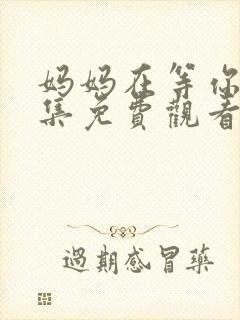 妈妈在等你
集免费觀看
過期感冒藥